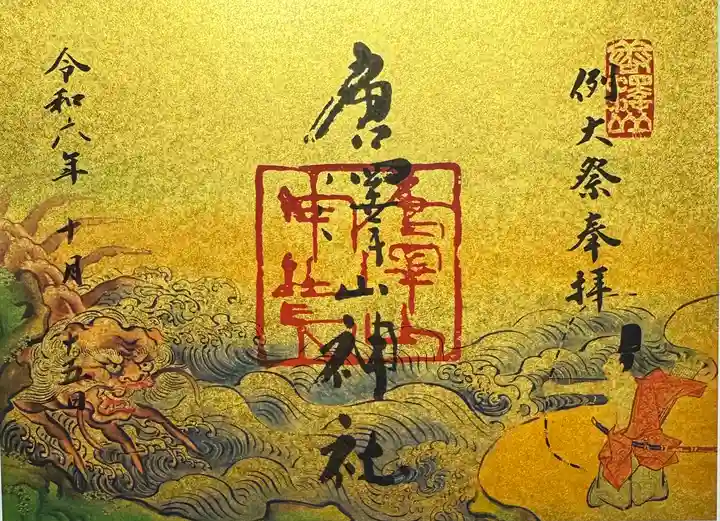 唐澤山
例大祭奉拝
唐澤山神社
令和六年十月十五日